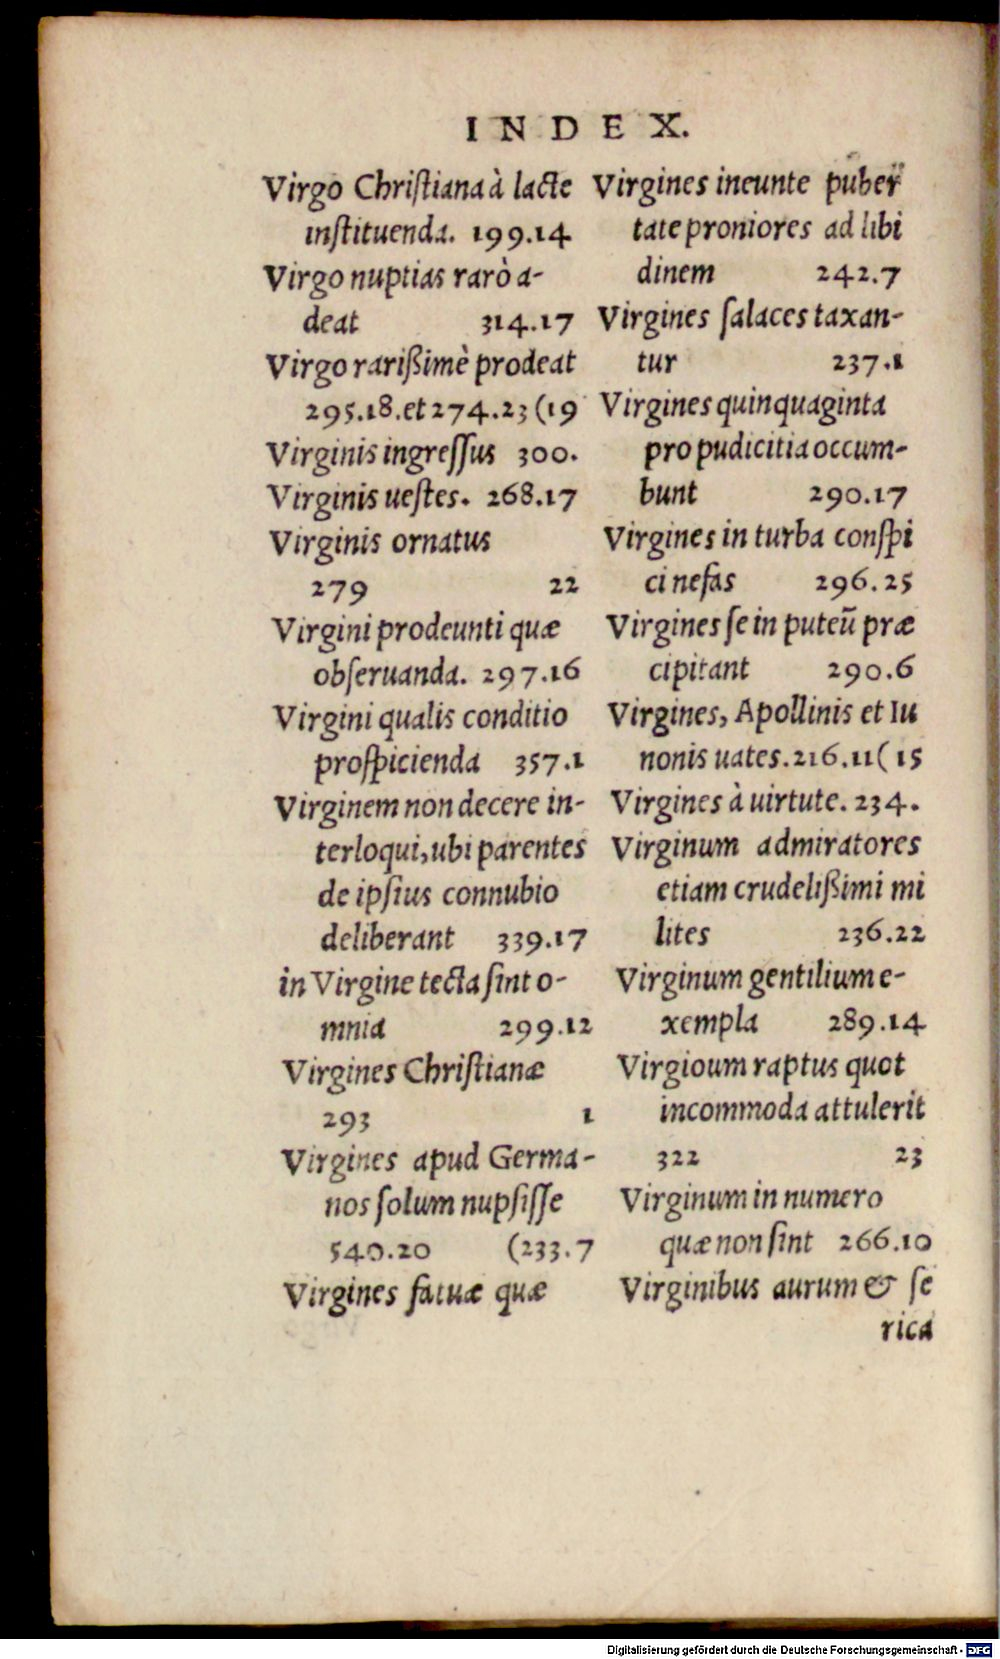 INDEX.
Virgo Christiana à lacte
instituenda. 199.14
Virgo nuptias rarò a-
deat 314.17
Virgo rarißimè prodeat
295.18. et 274.23 (19
Virginis ingreſſus 300.
Virginis ueſtes. 268.17
Virginis ornatus
279 22
Virgini prodeunti quæ
obſeruanda. 297.16
Virgini qualis conditio
proſpicienda 357.1
Virginem non decere in-
terloqui, ubi parentes
de ipſius connubio
deliberant 339.17
in Virgine tecta ſint o-
mnia 299.12
Virgines Chriſtianæ
293 1
Virgines apud Germa-
nos ſolum nupſiſſe
540.20 (233.7
Virgines fatuæ quæ
Virgines ineunte puber
tate proniores ad libi
dinem 242.7
Virgines ſalaces taxan-
tur 237.1
Virgines quinquaginta
pro pudicitia occum-
bunt 290.17
Virgines in turba conſpi
ci nefas 296.25
Virgines ſe in puteū præ
cipitant 290.6
Virgines, Apollinis et Iu
nonis uates. 216.11 (15
Virgines à uirtute. 234.
Virginum admiratores
etiam crudelißimi mi
lites 236.22
Virginum gentilium e-
xempla 289.14
Virgioum raptus quot
incommoda attulerit
322 23
Virginum in numero
quæ non ſint 266.10
Virginibus aurum & ſe
rica
Digitalisierung gefördert durch die Deutsche Forschungsgemeinschaft - DFG